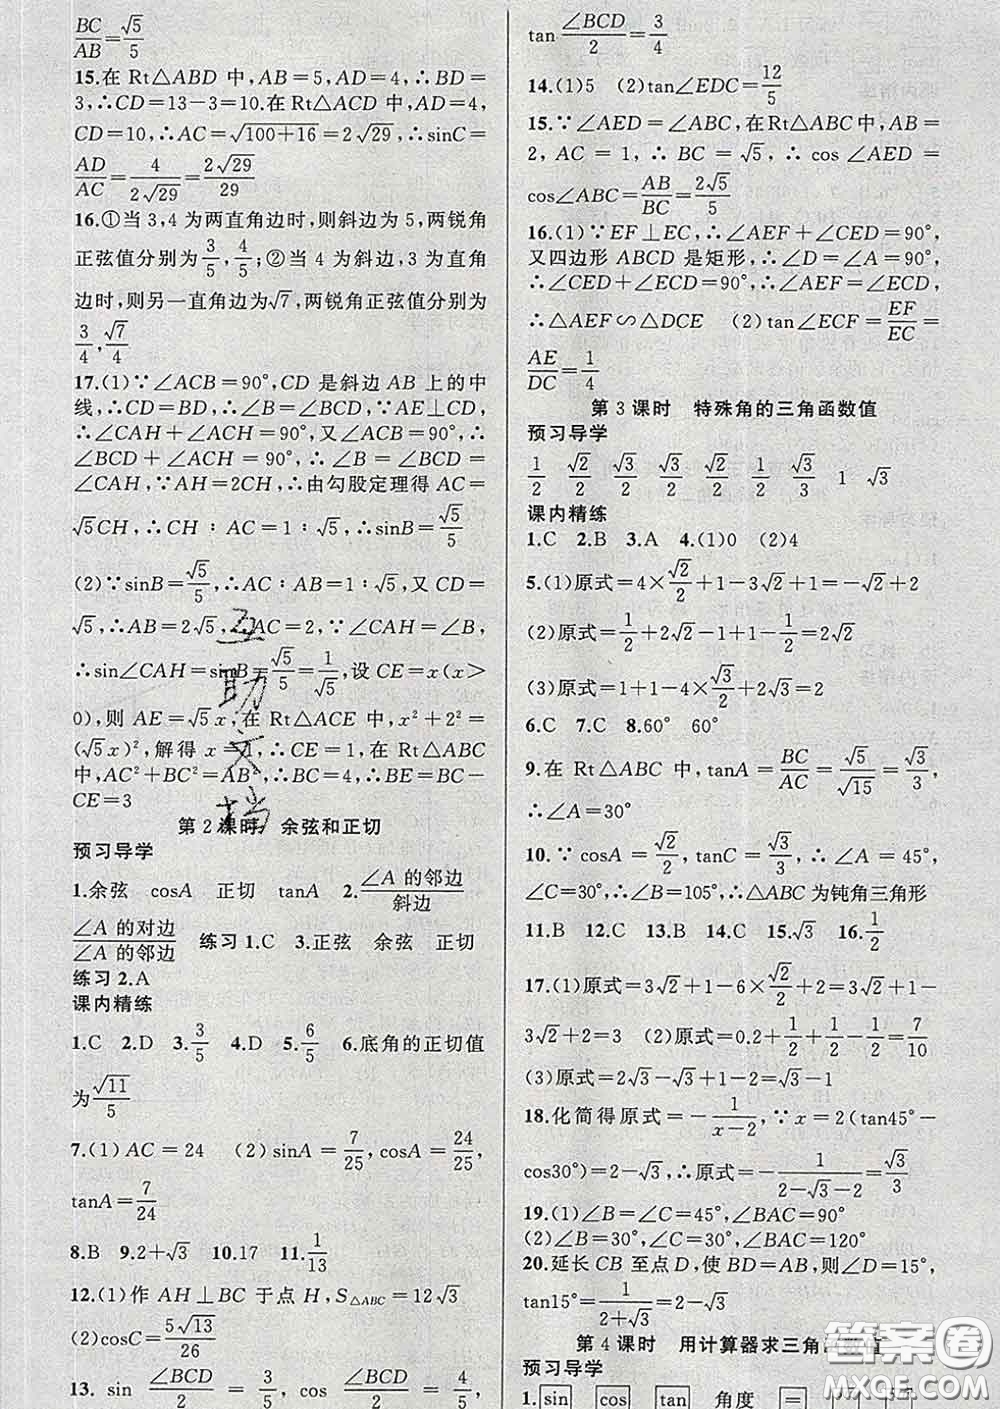 BC/AB=√5/5
15.在 Rt△ABD 中,AB=5,AD=4,∴BD=
3,∴CD=13-3=10.在Rt△ADC 中,AD=4,
CD=10,∴AC=√(100+16)=2√29,∴sinC=
AD/AC=4/(2√29)=2√29/29
16.①当 3,4 为两直角边时,则斜边为 5,两锐角
正弦值分别为3/5,4/5;②当 4 为斜边,3 为直角
边时,则另一直角边为√7,两锐角正弦值分别为
3/4,√7/4
17.(1)∵∠ACB=90°,CD 是斜边 AB 上的中
线,∴CD=BD,∴∠B=∠BCD,∵AE⊥CD,
∴∠CAH+∠ACH=90°,又∠ACB=90°,∴
∠BCD+∠ACH=90°,∴∠B=∠BCD=
∠CAH,∵AH=2CH,∴由勾股定理得 AC=
√5CH,∴CH∶AC=1∶√5,∴sinB=√5/5
(2)∵sinB=√5/5,∴AC∶AB=1∶√5,又 CD=
√5,∴AB=2√5,∴AC=2,∵∠CAH=∠B,
∴sin∠CAH=sinB=√5/5=1/√5,设 CE=x(x>
0),则 AE=√5x,在 Rt△ACE 中,x²+2²=
(√5x)²,解得 x=1,∴CE=1,在 Rt△ABC
中,AC²+BC²=AB²,∴BC=4,∴BE=BC-
CE=3
第2课时 余弦和正切
预习导学
1.余弦 cosA 正切 tanA 2.∠A的邻边/斜边
∠A的对边/∠A的邻边 练习1.C 3.正弦 余弦 正切
练习2.A
课内精练
1.C 2.D 3.3/5 4.D 5.6/5 6.底角的正切值
为√11/5
7.(1)AC=24 (2)sinA=7/25,cosA=24/25,
tanA=7/24
8.B 9.2+√3 10.17 11.1/13
12.(1)作 AH⊥BC 于点 H,S△ABC=12√3
(2)cosC=5√13/26
13. sin ∠BCD/2=3/5, cos ∠BCD/2=4/5,
tan ∠BCD/2=3/4
14.(1)5 (2)tan∠EDC=12/5
15.∵∠AED=∠ABC,在Rt△ABC中,AB=
2,AC=1,∴BC=√5,∴cos∠AED=
cos∠ABC=AB/BC=2√5/5
16.(1)∵EF⊥EC,∴∠AEF+∠CED=90°,
又四边形 ABCD 是矩形,∴∠D=∠A=90°,
∴∠CED+∠ECD=90°,∴∠AEF=∠ECD,
∴△AEF∽△DCE (2)tan∠ECF=EF/EC=
AE/DC=1/4
第3课时 特殊角的三角函数值
预习导学
1/2 √2/2 √3/2 √3/2 √2/2 1/2 √3/3 1 √3
课内精练
1.C 2.B 3.A 4.(1)0 (2)4
5.(1)原式=4×√2/2+1-3√2+1=-√2+2
(2)原式=1/2+2√2-1+1-1/2=2√2
(3)原式=1+1-4×√3/2+2√3=2
6.C 7.C 8.60° 60°
9.在 Rt△ABC 中,tanA=BC/AC=√5/√15=√3/3,
∴∠A=30°
10.∵cosA=√2/2,tanC=√3/3,∴∠A=45°,
∠C=30°,∴∠B=105°,∴△ABC为钝角三角形
11.B 12.C 13.B 14.C 15.√3 16.1/2
17.(1)原式=3√2+1-6×√2/2+2=3√2+1-
3√2+2=3 (2)原式=0.2+1/2+1/2-1/2=7/10
(3)原式=2√3-√3+1-√3=1
18.化简得原式=-1/(x-2),∵x=2(tan45°-
cos30°)=2-√3,∴原式=-1/(2-√3-2)=√3/3
19.(1)∠B=∠C=45°,∠BAC=90°
(2)∠B=∠C=30°,∠BAC=120°
20.延长 CB 至点D,使 BD=AB,则∠D=15°,
tan15°=1/(2+√3)=2-√3
第4课时 用计算器求三角函数值
预习导学
1.sin cos tan 角度 =
互助文档
答案圈
MXQE.COM